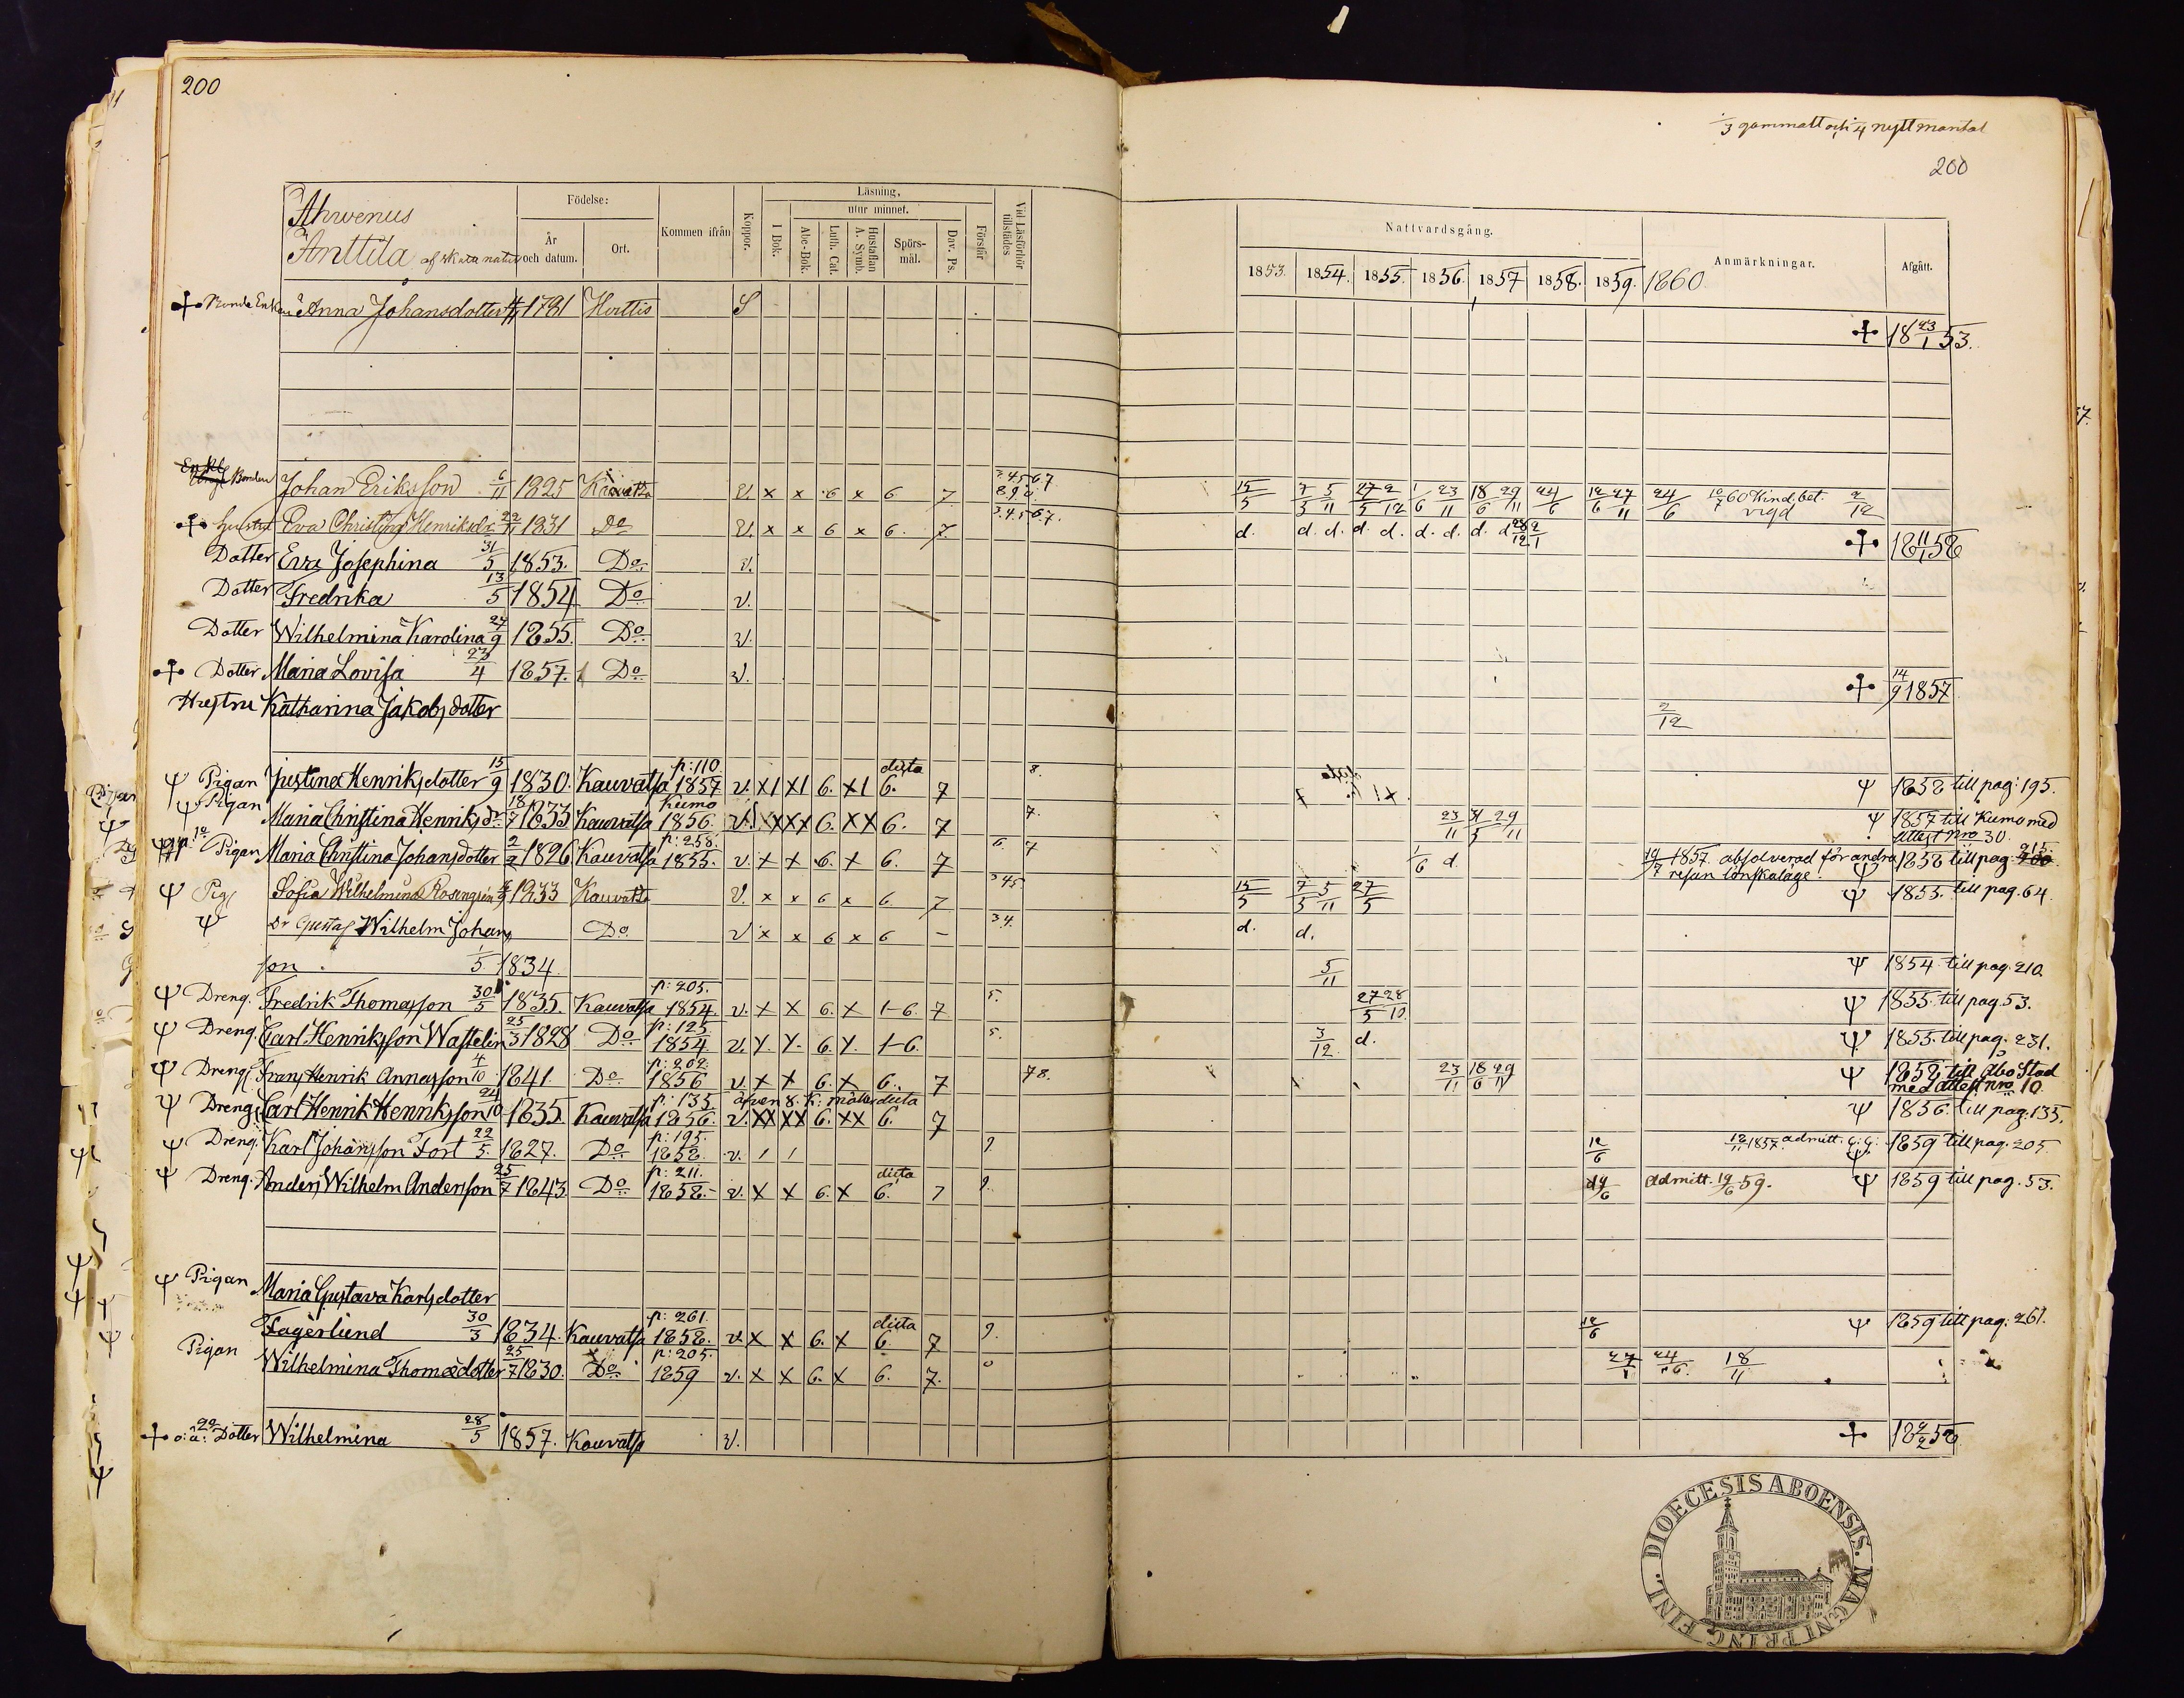 200
1/3 gammalt och 1/4 nytt mantal
200
Ahwenus
Anttila af skatte natur
Födelse:
År och datum.
Ort.
Kommen ifrån
Koppor.
Läsning,
I Bok.
utur minnet.
Abc-Bok.
Luth. Cat.
Hustaflan A. Symb.
Spörsmål.
Dav. Ps.
Förstår
Vid Läsförhör tillstädes
Nattvardsgång.
1853. 1854. 1855. 1856. 1857 1858. 1859. 1860.
Anmärkningar.
Afgått.
Bonde Enkan Anna Johansdotter 1781 Hvittis S 18 23/1 53.
Enkl. Bonden Johan Eriksson 6/11 1825 Kauvatsa v. x x 6 x 6 7 3.4.5.6.7. 8.9.0. 15/5 7/5 5/11 27/5 2/12 1/6 23/11 18/6 29/11 24/6 12/6 27/11 24/6 10/7 60 Hind.bet. vigd 2/12
Hustru Eva Christina Henriksdr 22/11 1831 Do v. x x 6 x 6. 7 3.4.5.6.7. d. d. d. d. d. d. d. d. d 28/12 2/1 18 11/1 58
Dotter Eva Josephina 31/5 1853. Do v.
Dotter Fredrika 13/5 1854 Do v.
Dotter Wilhelmina Karolina 24/9 1855. Do v.
Dotter Maria Lovisa 23/4 1857. Do v. 14/9 1857
Hustru Katharina Jakobsdotter 2/12
Ψ Pigan Justina Henriksdotter 15/9 1830. Kauvatsa p: 110 1857 v. x1 x1 6. x1 dicta 6. 7 8. Ψ 1858 till pag: 195.
Ψ Pigan Maria Christina Henriksdr 18/7 1833 Kauvatsa Kumo 1856. v. xx xx 6. xx 6. 7 7. 23/11 31/5 29/11 Ψ 1857 till Kumo med attest Nro 30.
Pigan Maria Christina Johansdotter 2/2 1826 Kauvatsa p: 258. 1855. v. x x 6. x 6. 7 6. 7 1/6 d. 19/7 1857. absolverad för andra resan lönskaläge. Ψ 1858 till pag. 200 215.
Ψ Pig. Sofia Wilhelmina Rosengren 1833 Kauvatsa v. x x 6 x 6 7 3 4 5 15/5 7/5 5/11 27/5 Ψ 1855. till pag. 64
Ψ Dr Gustaf Wilhelm Johans Do v x x 6 x 6 - 3.4. d. d.
son. 1/5 1834. 5/11 Ψ 1854 till pag. 210.
Ψ Dreng. Fredrik Thomasson 30/5 1835. Kauvatsa p: 205. 1854. v. x x 6. x 1-6. 7 5. 27/5 28/10. Ψ 1855. till pag. 53.
Ψ Dreng. Carl Henriksson Wastelin 25/3 1828 Do p: 125 1854 v. x. x. 6. x. 1-6. 5. 3/12. d. Ψ 1855. till pag. 231.
Ψ Dreng. Frans Henrik Annasson 4/10 1841. Do p: 202. 1856 v. x x 6. x 6. 7 7 8. 23/11 18/6 29/11 Ψ 1858 till Åbo Stad med attest nro 10
Ψ Dreng. Carl Henrik Henriksson 24/10 1835. Kauvatsa p: 135 1856. v. xx xx 6. xx dicta 6. 7 Ψ 1856. till pag. 135.
Ψ Dreng. Karl Johansson Fort 22/5. 1827. Do p: 195. 1858. v. 1 1 9. 12/6 12/11 1857. admitt. Ψ 1859 till pag. 205.
Ψ Dreng. Anders Wilhelm Andersson 25/7 1843 Do p: 211. 1858. v. x x 6. x dicta 6. 7 9. 19/6 admitt. 19/6 59. Ψ 1859 till pag. 53.
Ψ Pigan Maria Gustava Karlsdotter
Fagerlund 30/3 1834. Kauvatsa p: 261. 1858. v. x x 6. x dicta 6. 7 9. 12/6 Ψ 1859 till pag. 261.
Pigan Wilhelmina Thomædotter 25/7 1830. Do p: 205. 1859 v. x x 6. x 6. 7. 0 27/1 24/6. 18/11
o: ä: Dotter Wilhelmina 28/5 1857. Kauvatsa v. 18 2/2 58
DIOECESIS ABOENSIS. MAGNI PRINC. FINL.